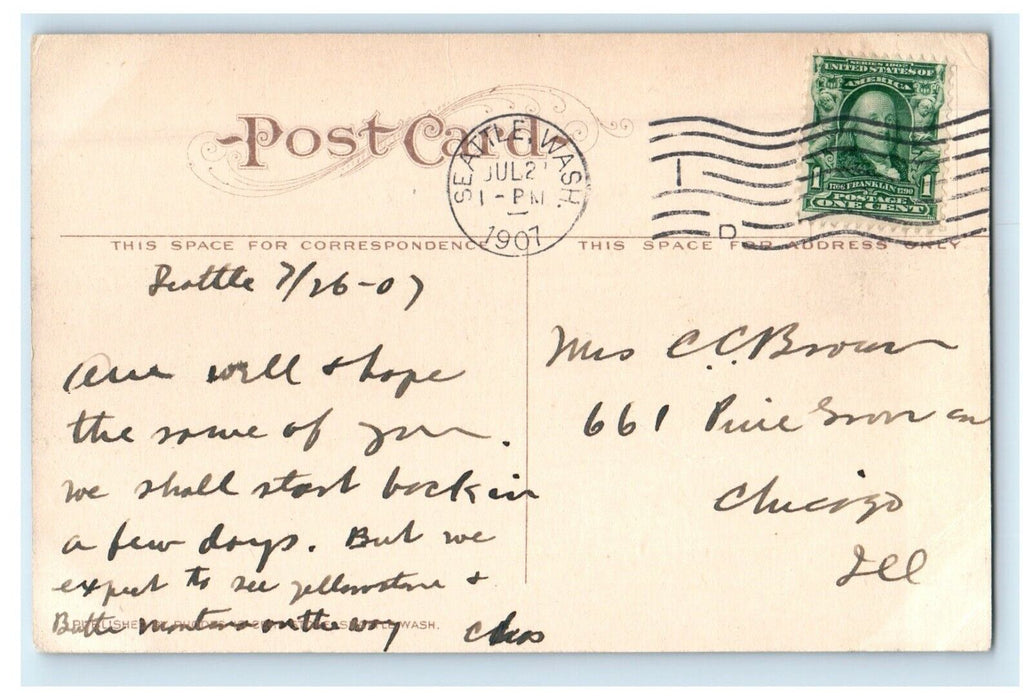 Post Card
SEATTLE, WASH.
JUL 2
1 - PM
1907
SERIES 1902
UNITED STATES OF
AMERICA
1706 FRANKLIN 1790
1 POSTAGE 1
ONE CENT
D
THIS SPACE FOR CORRESPONDENCE
THIS SPACE FOR ADDRESS ONLY.
Seattle 7/26-07
Are well & hope
the same of you.
we shall start back in
a few days. But we
expect to see yellowstone &
Butte montana on the way
Chas
Mrs C.C. Brown
661 Pine Grove av
Chicago
Ill
PUBLISHED WASH.